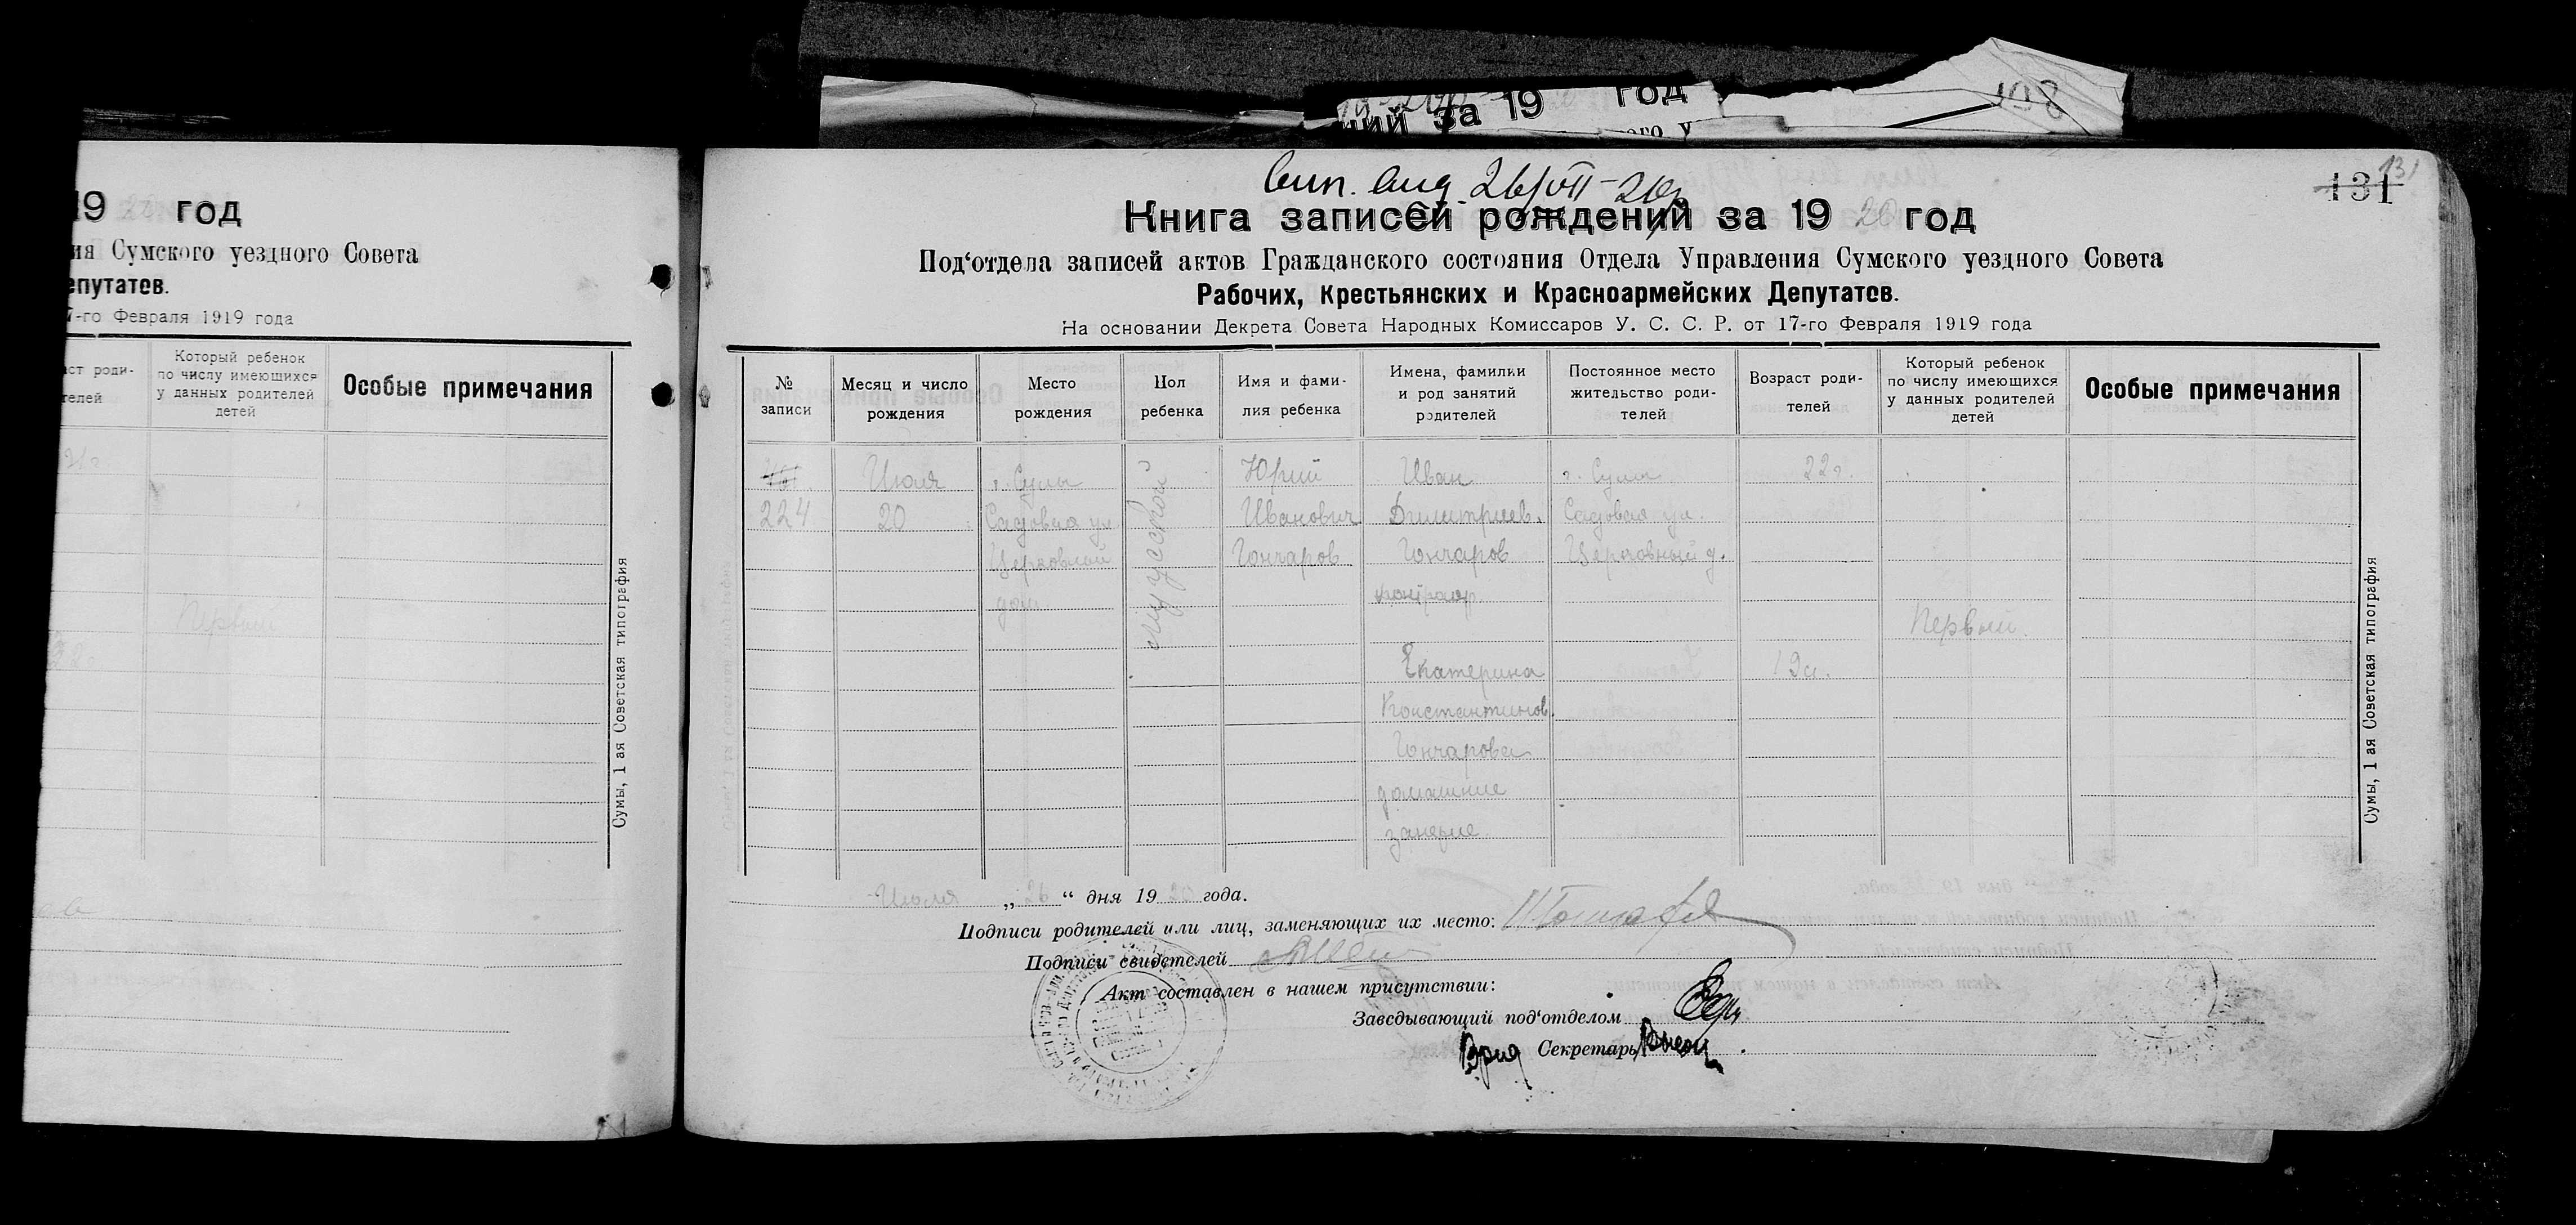 год
ний за 19
108
19 год
ия Сумского уездного Совета
епутатов.
7-го Февраля 1919 года
ст роди-
телей
Который ребенок
по числу имеющихся
у данных родителей
детей
Особые примечания
Первый
Сумы, 1 ая Советская типография
131
131
26/VII-20
Книга записей рождений за 19 20 год
Под‘отдела записей актов Гражданского состояния Отдела Управления Сумского уездного Совета
Рабочих, Крестьянских и Красноармейских Депутатов.
На основании Декрета Совета Народных Комиссаров У. С. С. Р. от 17-го Февраля 1919 года
№
записи
Месяц и число
рождения
Место
рождения
Пол
ребенка
Имя и фами-
лия ребенка
Имена, фамилии
и род занятий
родителей
Постоянное место
жительство роди-
телей
Возраст роди-
телей
Который ребенок
по числу имеющихся
у данных родителей
детей
Особые примечания
224
Июля
20
г. Сумы
Садовая ул.
Церковный
дом
мужской
Юрий
Иванович
Гончаров
Иван
Димитриев.
Гончаров
Екатерина
Константинов.
Гончарова
домашние
занятие
г. Сумы
Садовая ул.
Церковный д.
22 г.
19 л.
Первый.
Сумы, 1 ая Советская типография
Июля „ 26 “ дня 19 20 года.
Подписи родителей или лиц, заменяющих их место:
Подписи свидетелей
Акт составлен в нашем присутствии:
Заведывающий под‘отделом
Врид Секретарь